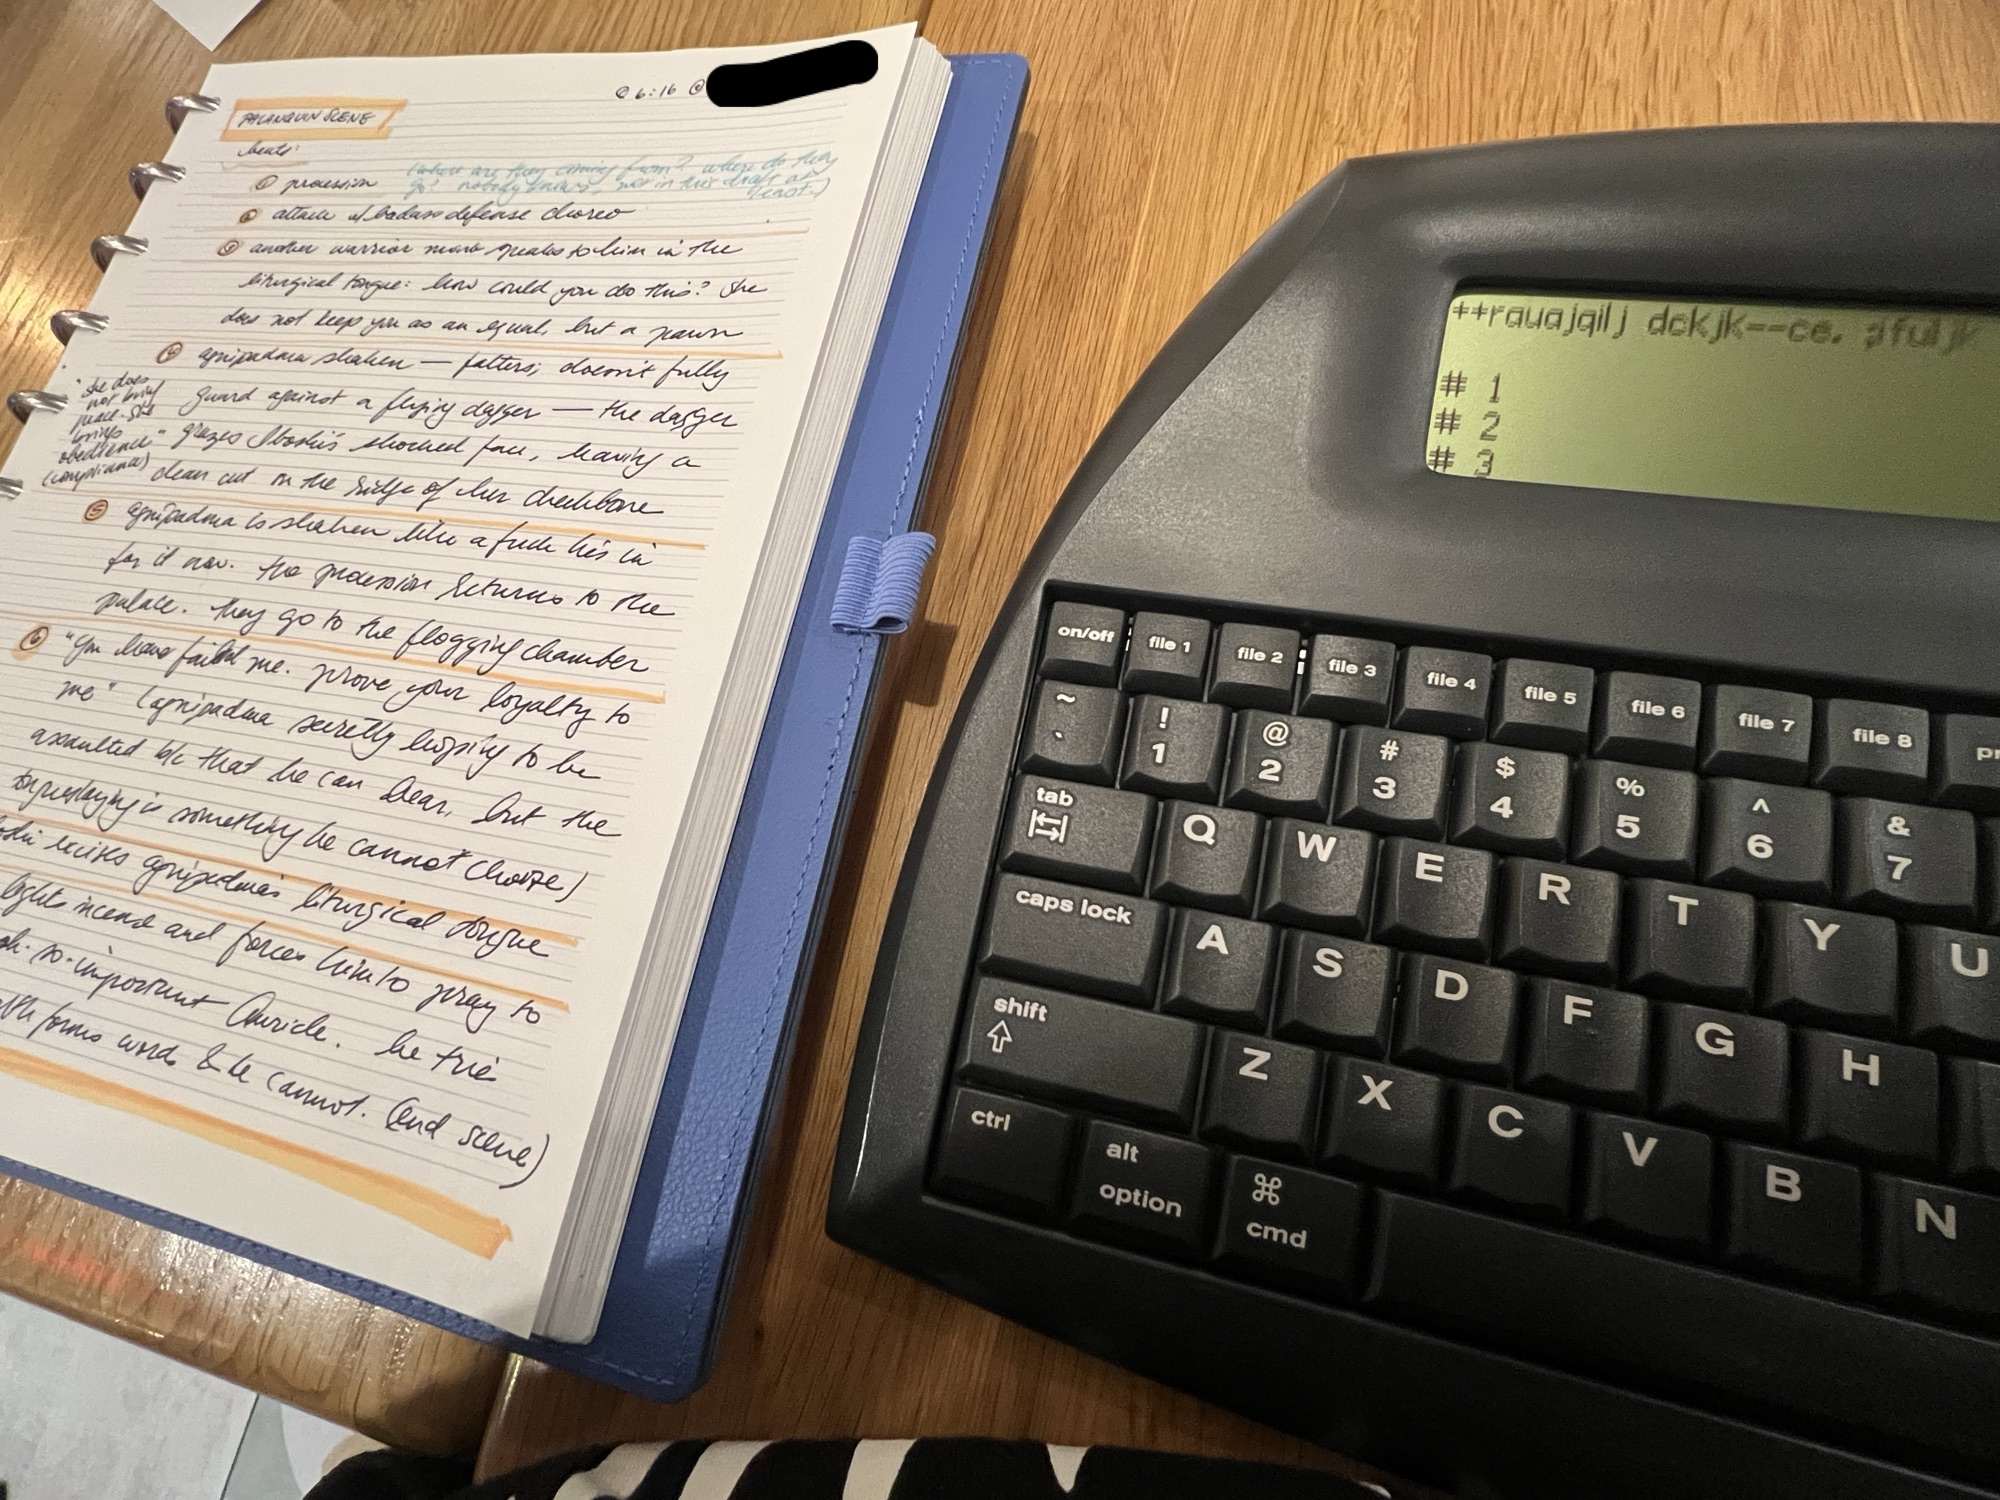 @ 6:16 @
PALANQUIN SCENE
beats:
① procession (where are they coming from? where do they
go? nobody knows, not in this draft at
least.)
② attack w/ badass defense choreo
③ another warrior monk speaks to him in the
liturgical tongue: how could you do this? She
does not keep you as an equal, but a pawn
④ agnipadma shaken — falters; doesn't fully
guard against a flying dagger — the dagger
grazes shocked face, leaving a
clean cut on the ridge of her cheekbone
"she does
not bring
peace. she
brings
obedience"
(compliance)
⑤ agnipadma is shaken like a fuck he's in
for it now. the procession returns to the
palace. they go to the flogging chamber
⑥ "you have failed me. prove your loyalty to
me" (agnipadma secretly hoping to be
assaulted b/c that he can bear, but the
is something he cannot choose)
agnipadma's liturgical tongue
lights incense and forces him to pray to
so-important Auricle. he tries
forms words & he cannot. (end scene)
++rauajqilj dckjk--ce. ;lfuljk
# 1
# 2
# 3
on/off file 1 file 2 file 3 file 4 file 5 file 6 file 7 file 8 pr
~ ` ! 1 @ 2 # 3 $ 4 % 5 ^ 6 & 7
tab Q W E R T Y U
caps lock A S D F G H
shift Z X C V B N
ctrl alt option ⌘ cmd